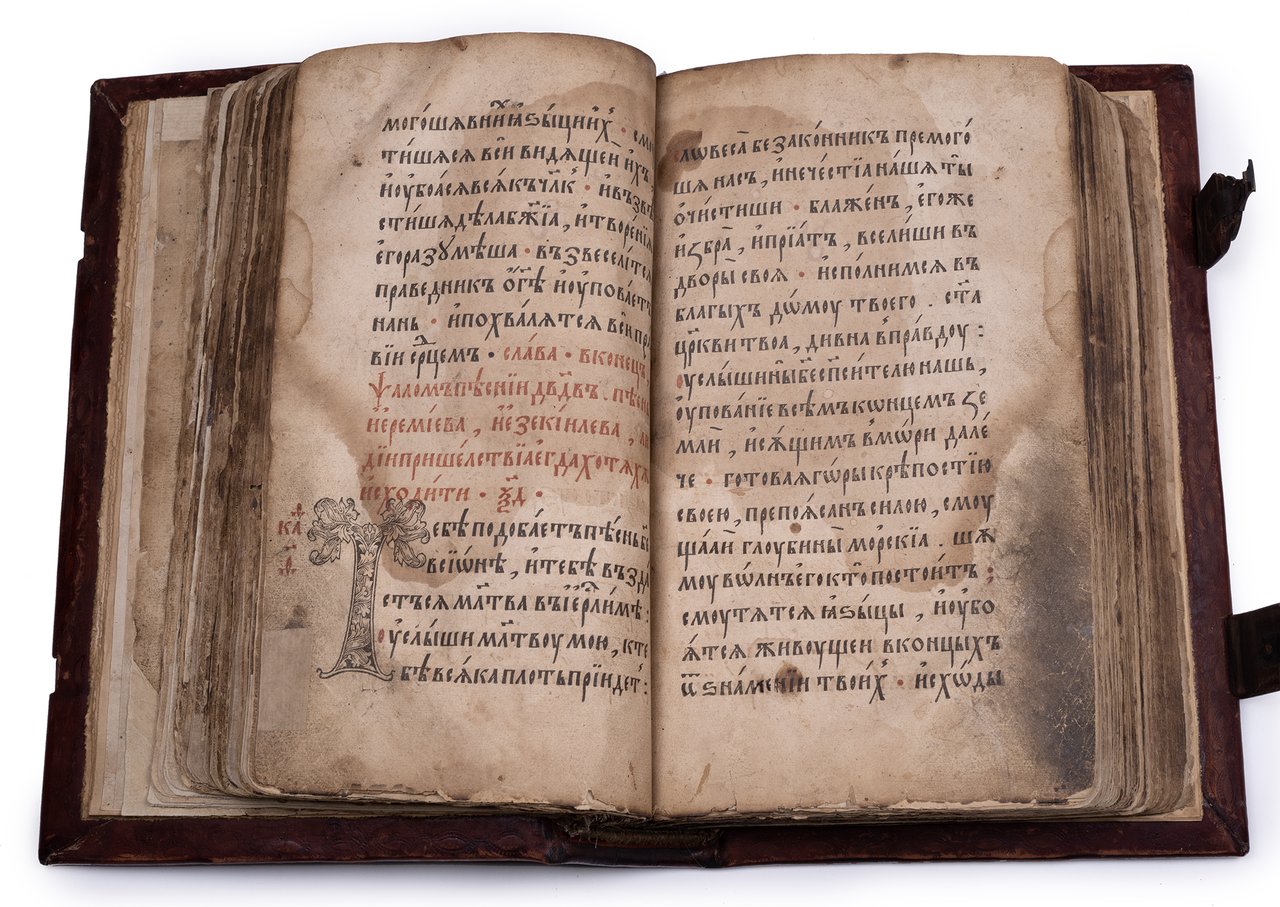 могошѧвнй йꙗ҆зы́цийх꙯ · смѧ
ти́шѧсѧ всѝ ви́дѧщеи и҆́хъ,
и҆оубоа́сѧ всѧ́къ чл҃къ · и҆възвѣ
сти́шѧ дѣ́ла бж҃їа, и҆творе́нїа
є҆го разꙋмѣ́ша · възвесели́тсѧ
пра́ведникъ ѡ҆бз҃ѣ и҆оупова́етъ
нань · и҆похва́лѧтсѧ всѝ пра
вїи ср҃цемъ · сла́ва · вконе́цъ,
Ѱало́мъ пѣ́снїи дв҃двъ. пѣ́снь
і҆еремі́ева, и҆езекі́илева, лю
ді́и прише́лствїа є҆гда хотѧ́хꙋ
и҆сходи́ти · ѯ҃д ·
ка
Тебѣ̀ подоба́етъ пѣ́снь бж҃е
всиѡ́нѣ, и҆тебѣ̀ възда́
стъсѧ мл҃тва въ і҆ерл҃и́мѣ :
оу҆слы́ши мл҃твоу мою̀, к те
бѣ̀ всѧ́ка пло́ть прїи́детъ :
словеса̀ беззако́нникъ премого́
шѧ насъ, и҆нече́стїа на́ша ты̀
ѡ҆чи́стиши · блаже́нъ, є҆го́же
и҆збра̀, и҆прїа́тъ, всели́ши въ
дворы̀ своѧ̀ · и҆спо́лнимсѧ въ
благы́хъ до́моу твоего̀. ст҃а
цр҃кви твоа̀, ди́вна в пра́вдоу :
оу҆слы́ши ны̀ бж҃е сп҃си́телю нашь,
оу҆пова́нїе всѣ́мъ ко́нцемъ зе
млѝ, и҆су́щимъ вмо́ри дале́
че · гото́ваѧ го́ры крѣ́постїю
своею, препоѧ́санъ си́лою, смоу
ща́аи глоубины̀ морскі́а. шѧ
моу во́лнъ є҆го̀ кто̀ постои́тъ :
смоутѧ́тсѧ ꙗ҆зы́цы, и҆оубо
ѧ́тсѧ живоу́щеи в концы́хъ
ѿ зна́менїи твои́х · и҆схо́ды